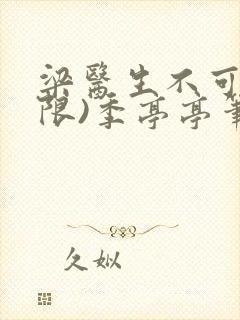 梁醫生不可
限)季亭亭筆
久姒